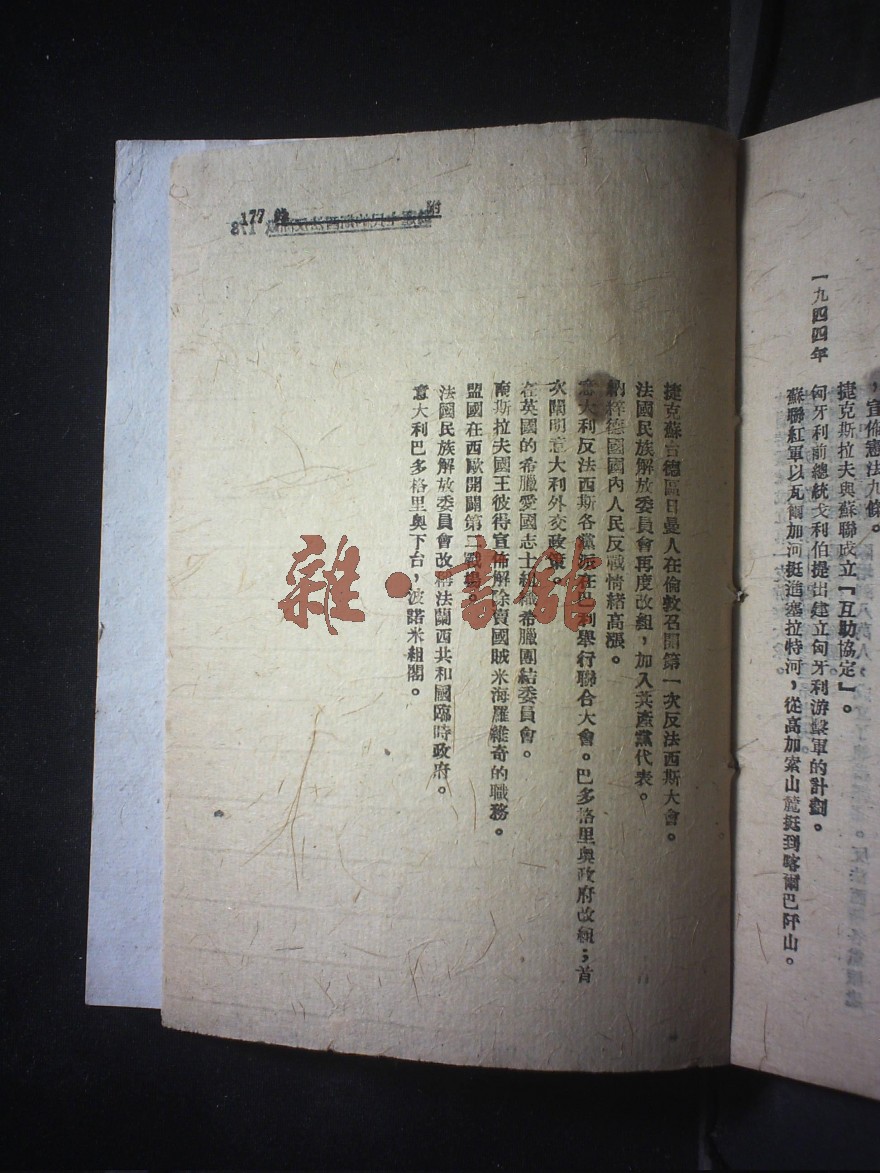 ，宣佈憲法九條。
捷克斯拉夫與蘇聯成立「互助協定」。
一九四四年
匈牙利前總統戈利伯提出建立匈牙利游擊軍的計劃。
蘇聯紅軍以瓦爾加河挺進塞拉特河，從高加索山麓挺到喀爾巴阡山。
附
177
捷克蘇台德區日曼人在倫敦召開第一次反法西斯大會。
法國民族解放委員會再度改組，加入共產黨代表。
納粹德國國內人民反戰情緒高漲。
意大利反法西斯各黨派在巴利舉行聯合大會。巴多格里奧政府改組；首
次闡明意大利外交政策。
在英國的希臘愛國志士組織希臘團結委員會。
南斯拉夫國王彼得宣佈解除賣國賊米海羅維奇的職務。
盟國在西歐開闢第二戰場。
法國民族解放委員會改稱法蘭西共和國臨時政府。
意大利巴多格里奧下台，波諾米組閣。
雜·書館